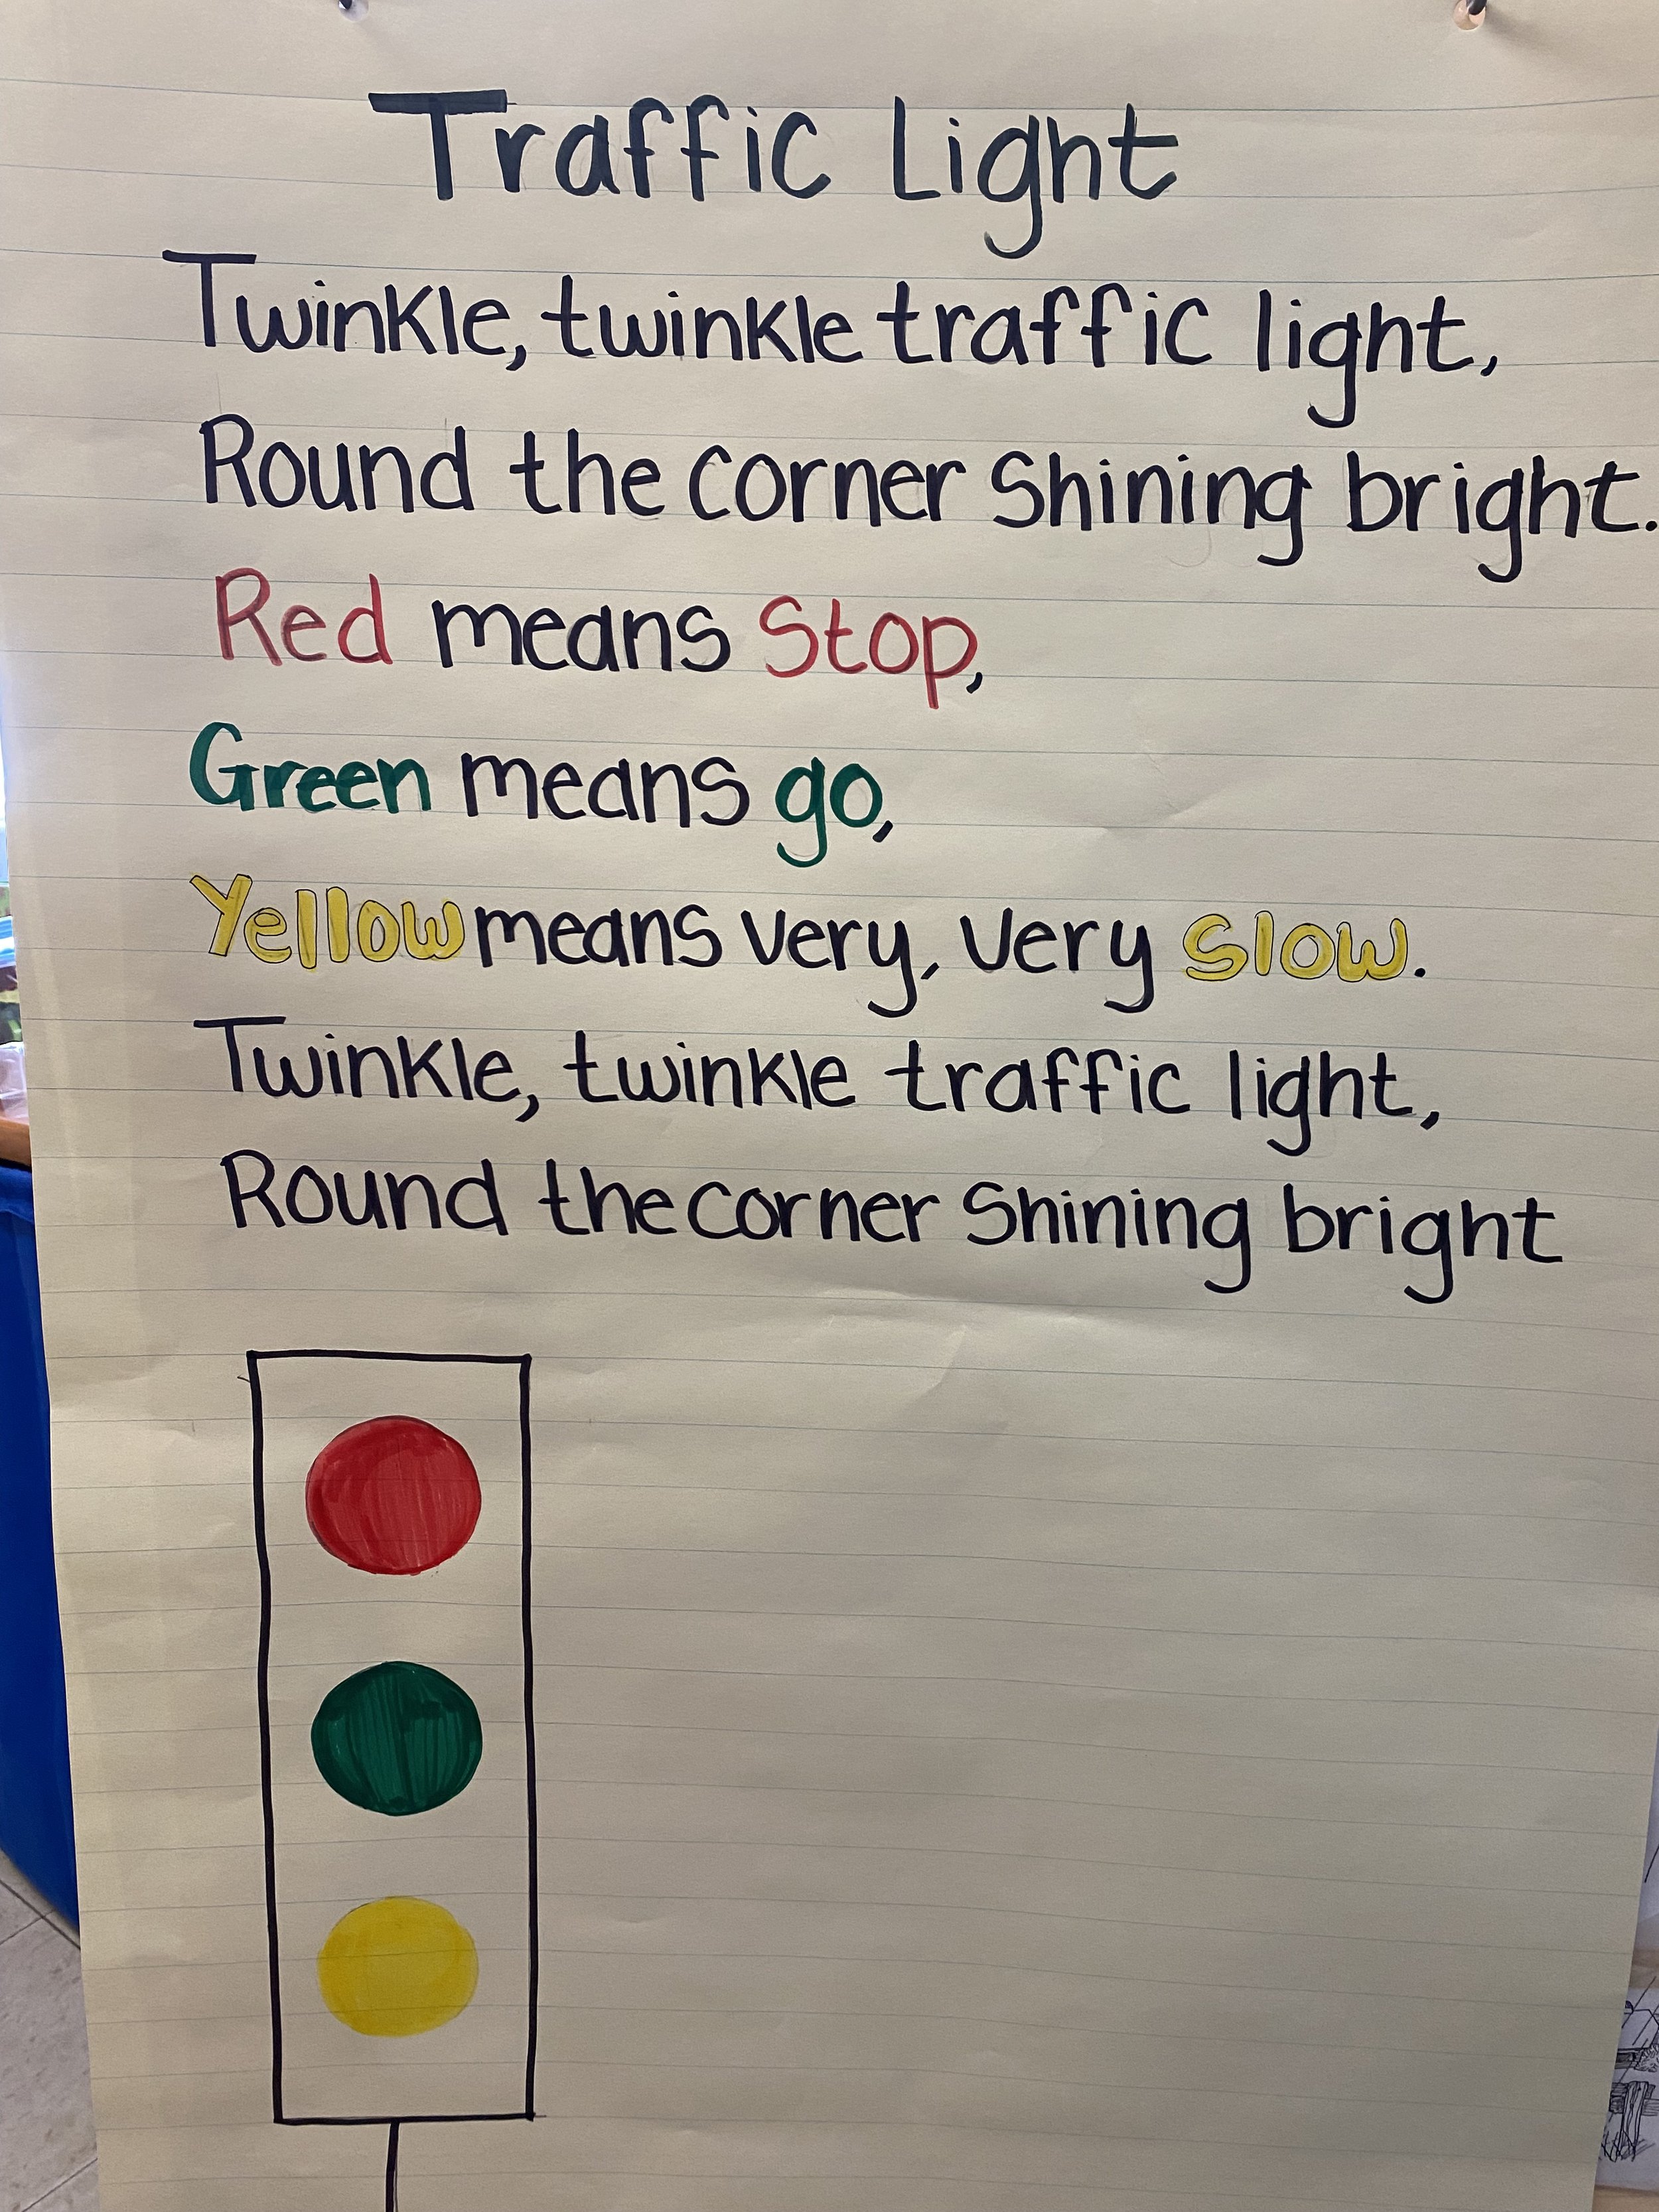 Traffic Light
Twinkle, twinkle traffic light,
Round the corner Shining bright.
Red means Stop,
Green means go,
Yellow means very, very slow.
Twinkle, twinkle traffic light,
Round the corner Shining bright